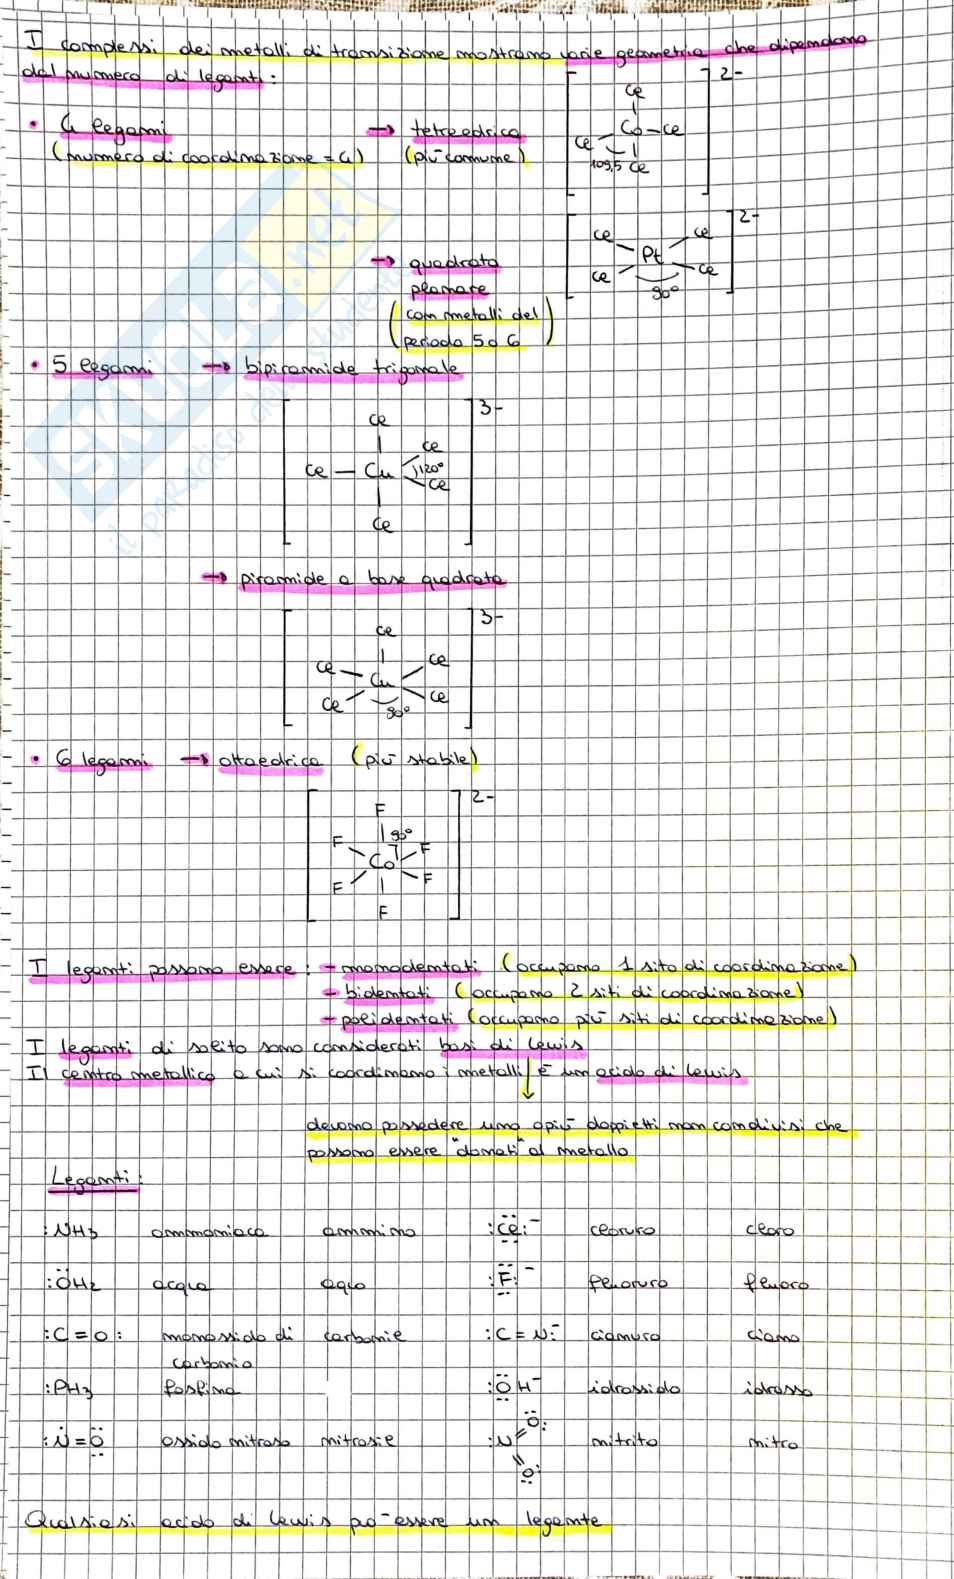 I complessi dei metalli di transizione mostrano varie geometria che dipendono
dal numero di leganti:
• 4 legami → tetraedrica
(numero di coordinazione = 4) (più comune)
[ Cl Cl Co Cl 109,5 Cl ] 2-
→ quadrata
planare
(con metalli del
periodo 5 o 6)
[ Cl Cl Pt Cl Cl 90° ] 2-
• 5 legami → bipiramide trigonale
[ Cl Cl Cl Cu 120° Cl Cl ] 3-
→ piramide a base quadrata
[ Cl Cl Cl Cu Cl Cl 90° ] 3-
• 6 legami → ottaedrica (più stabile)
[ F 90° F F Co F F F ] 2-
I leganti possono essere: - monodentati (occupano 1 sito di coordinazione)
- bidentati (occupano 2 siti di coordinazione)
- polidentati (occupano più siti di coordinazione)
I leganti di solito sono considerati basi di Lewis
Il centro metallico a cui si coordinano i metalli è un acido di Lewis
devono possedere uno o più doppietti non condivisi che
possono essere "donati" al metallo
Leganti:
:NH3 ammoniaca ammino :Cl:- cloruro cloro
:OH2 acqua aquo :F:- fluoruro fluoro
:C=O: monossido di carbonio carbonile :C=N:- cianuro ciano
:PH3 fosfina :OH- idrossido idrosso
:N=O ossido nitroso nitrosile :N O: O: nitrito nitro
Qualsiasi acido di Lewis può essere un legante
SKUOLA.net
il paradiso dello studente